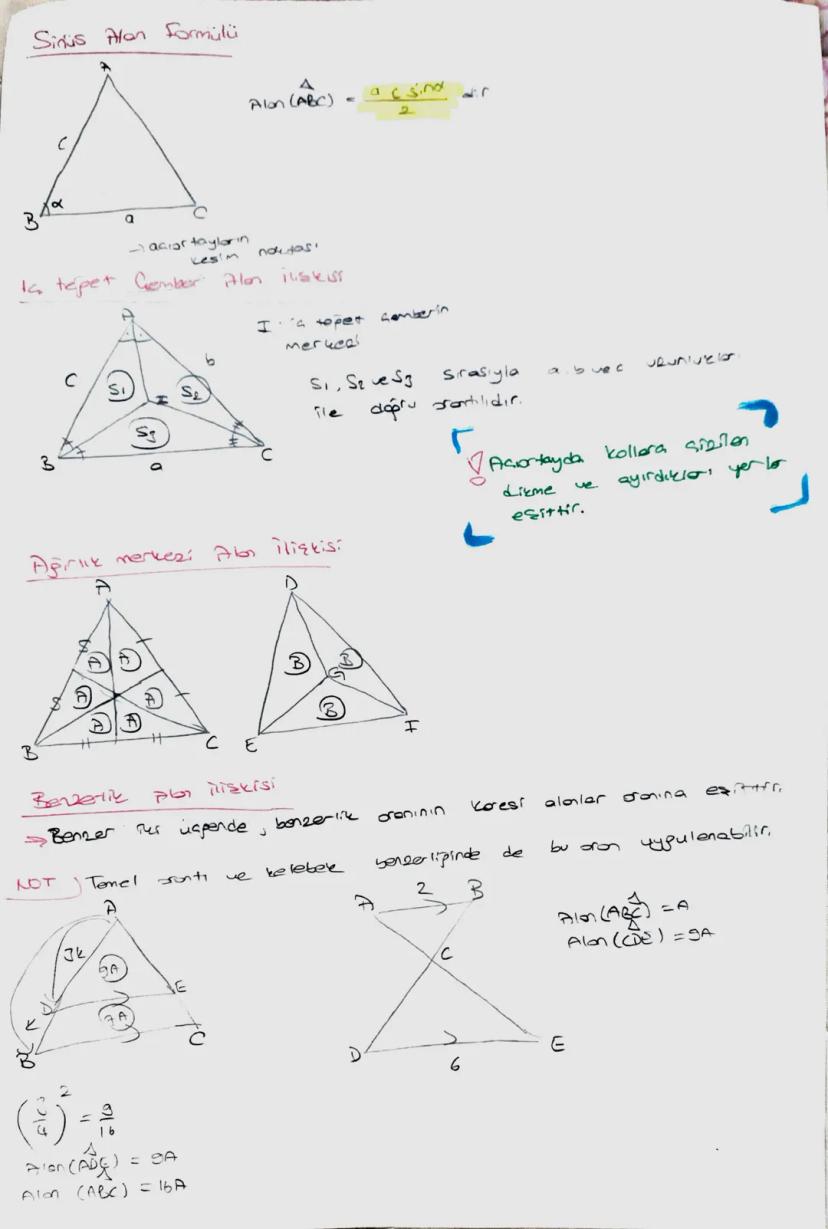 Sinüs Alan Formülü
A
C
B
α
a
C
Alan(ABC) = a c sinα / 2 dir
→ açıortayların
kesim noktası
İç teğet Çember Alan ilişkisi
A
C
b
S1
I
S2
S3
B
a
C
I : iç teğet çemberin
merkezi
S1, S2 ve S3 sırasıyla a, b ve c uzunlukları
ile doğru orantılıdır.
! Açıortayda kollara çizilen
dikme ve ayırdıkları yerler
eşittir.
Ağırlık merkezi Alan ilişkisi
A
A A
A A
A A
B
C
D
B B
G
B
E
I
Benzerlik Alan ilişkisi
⇒ Benzer iki üçgende, benzerlik oranının karesi alanlar oranına eşittir.
NOT) Temel orantı ve kelebek benzerliğinde de bu oran uygulanabilir.
A
3k
9A
D
E
k
7A
B
C
A
2
B
C
D
6
E
Alan(ABC) = A
Alan(CDE) = 9A
(3/4)² = 9/16
Alan(ADE) = 9A
Alan (ABC) = 16A